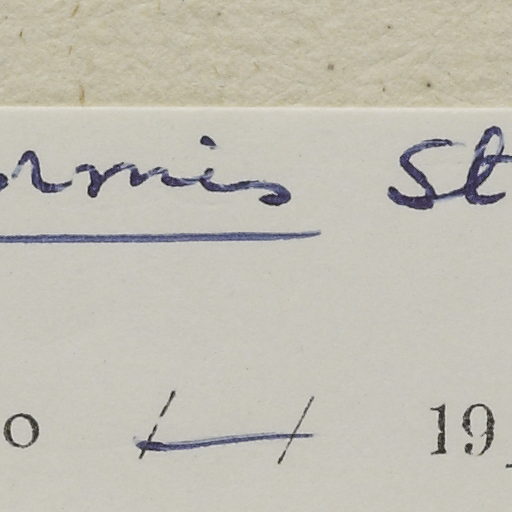 ormis St
o / — / 19